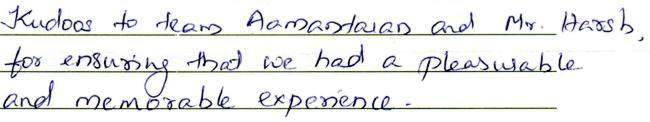 Kudoos to team Aamantaran and Mr. Harsh,
for ensuring that we had a pleasurable
and memorable experience.